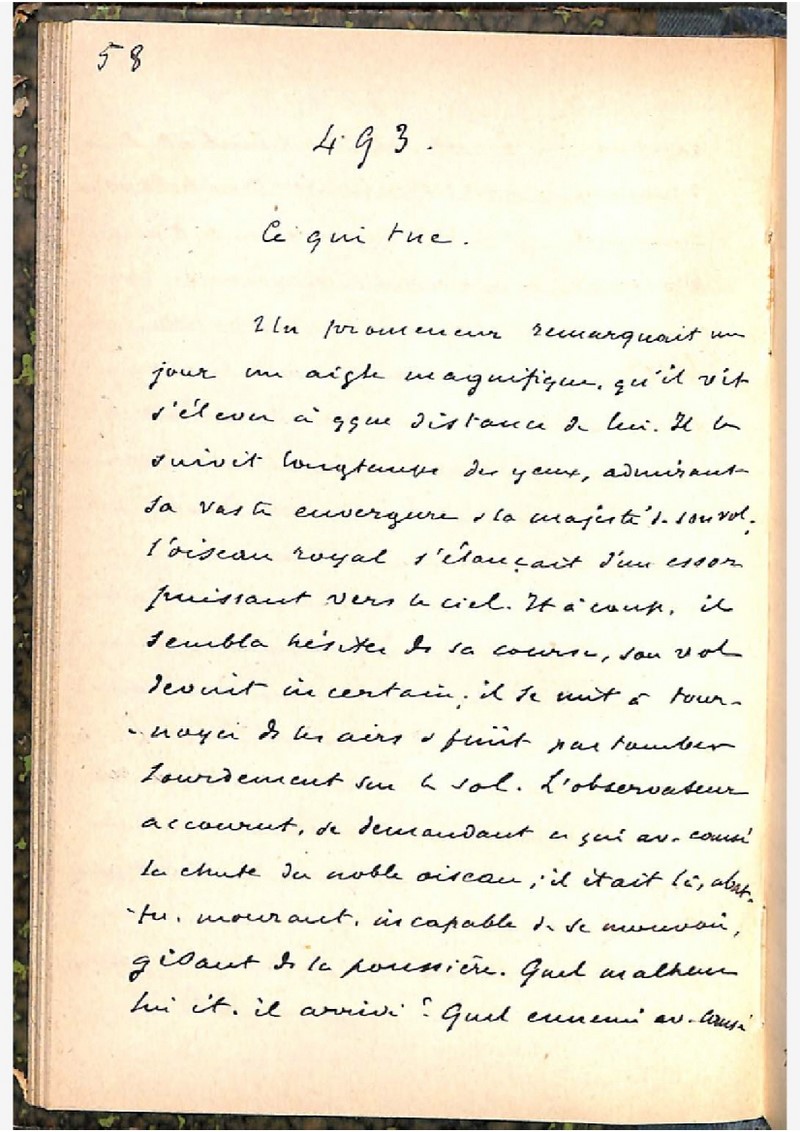 58
493.
Ce qui tue.
Un promeneur remarquait un
jour un aigle magnifique, qu'il vit
s'élever à qque distance de lui. Il le
suivit longtemps des yeux, admirant
sa vaste envergure & la majesté de son vol.
L'oiseau royal s'élançait d'un essor
puissant vers le ciel. Tt à coup, il
sembla hésiter ds sa course, son vol
devint incertain; il se mit à tour-
-noyer ds les airs & finit par tomber
lourdement sur le sol. L'observateur
accourut, se demandant ce qui av. causé
la chute du noble oiseau; il était là, abat-
-tu, mourant, incapable de se mouvoir,
gisant ds la poussière. Quel malheur
lui ét. il arrivé? Quel ennemi av. causé